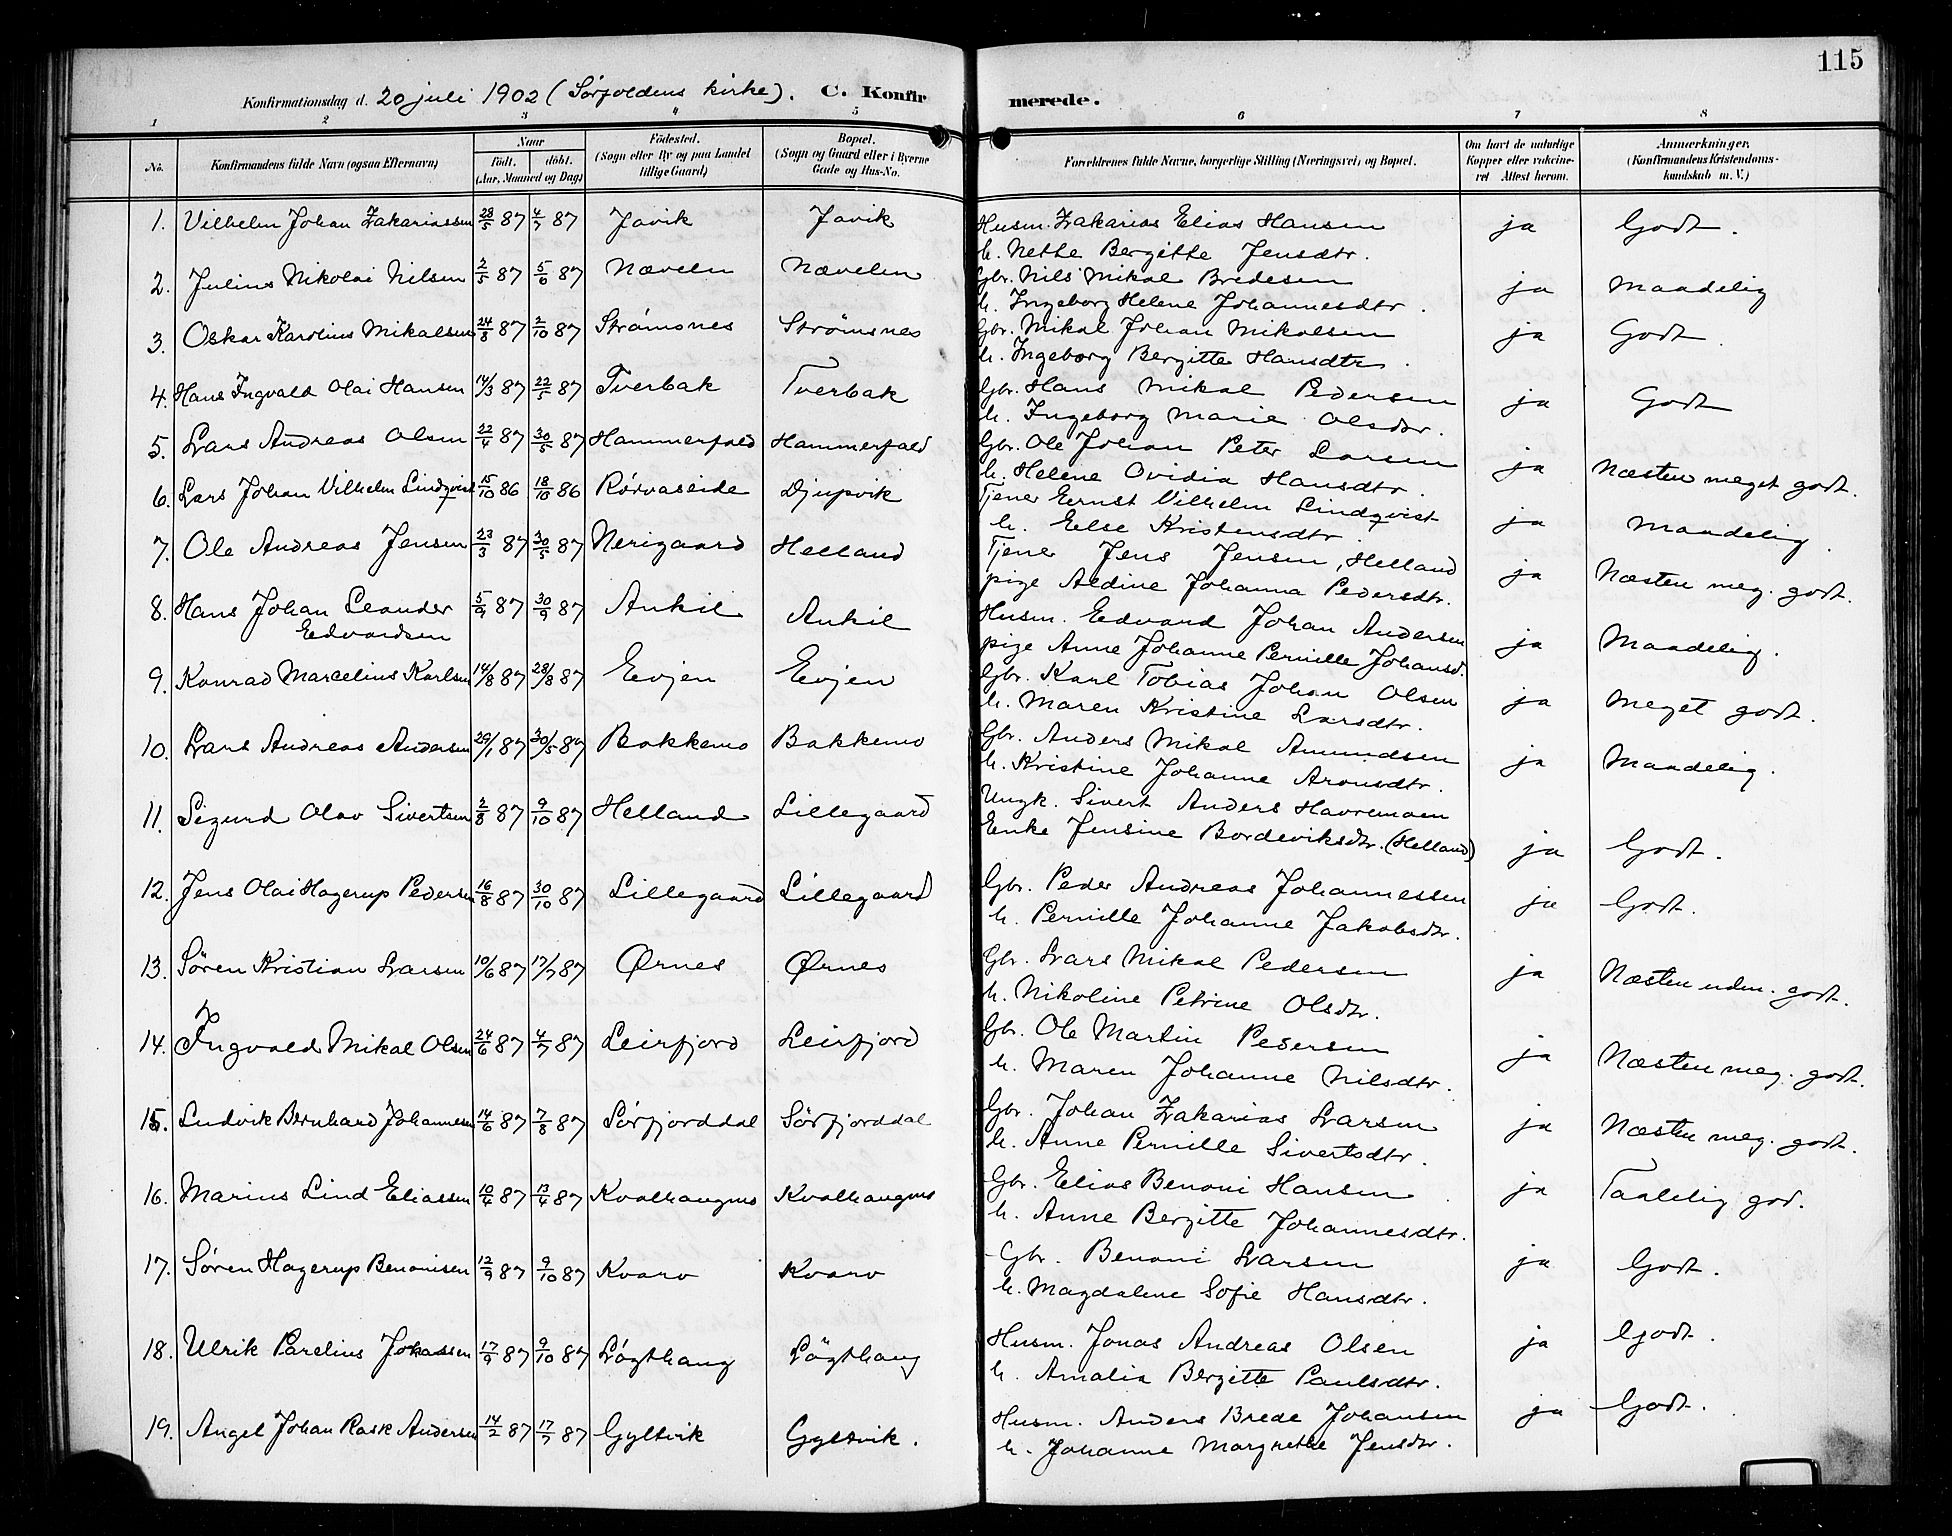 115
Konfirmationsdag d. 20 juli 1902 (Sørfoldens kirke). C. Konfirmerede.
1 2 3 4 5 6 7 8
No. Konfirmandens fulde Navn (ogsaa Efternavn) Naar født. døbt. (Aar, Maaned og Dag) Fødested. (Sogn eller By og paa Landet tillige Gaard) Bopæl. (Sogn og Gaard eller i Byerne Gade og Hus-No. Forældrenes fulde Navne, borgerlige Stilling (Næringsvei) og Bopæl. Om havt de naturlige Kopper eller vakcineret Attest herom. Anmærkninger. (Konfirmandens Kristendomskundskab m. V.)
1. Vilhelm Johan Zakariassen 28/5 87 4/7 87 Javik Javik Husm. Zakarias Elias Hansen ja Godt.
h. Nette Bergitte Jensdtr.
2. Julius Nikolai Nilsen 2/5 87 5/6 87 Nævelen Nævelen Gbr. Nils Mikal Bredesen ja Maadelig
h. Ingeborg Helene Johannesdtr.
3. Oskar Karolius Mikalsen 24/8 87 2/10 87 Strømsnes Strømsnes Gbr. Mikal Johan Mikalsen ja Godt.
h. Ingeborg Bergitte Hansdtr.
4. Hans Ingvald Olai Hansen 14/3 87 22/5 87 Tverbak Tverbak Gbr. Hans Mikal Pedersen ja Godt
h. Ingeborg Marie Olsdtr.
5. Lars Andreas Olsen 22/4 87 30/5 87 Hammerfald Hammerfald Gbr. Ole Johan Peter Larsen ja Næsten meget godt.
h. Helene Ovidia Hansdtr.
6. Lars Johan Vilhelm Lindqvist 15/10 86 18/10 86 Rørvaseide Djupvik Tjener Ernst Vilhelm Lindqvist ja Maadelig.
h. Else Kristensdtr.
7. Ole Andreas Jensen 23/3 87 30/5 87 Nerigaard Helland Tjener Jens Jensen, Helland ja Næsten meg. godt.
pige Aldine Johanna Pedersdtr.
8. Hans Johan Leander 5/9 87 30/9 87 Ankil Ankil Husm. Edvard Johan Andersen ja Maadelig.
Edvardsen pige Anne Johanne Pernille Johansd.
9. Konrad Marcelius Karlsen 14/8 87 28/8 87 Evjen Evjen Gbr. Karl Tobias Johan Olsen ja Meget godt.
h. Maren Kristine Larsdtr.
10. Lars Andreas Andersen 29/1 87 30/5 87 Bakkemo Bakkemo Gbr. Anders Mikal Amundsen ja Maadelig.
h. Kristine Johanne Aronsdtr.
11. Sigurd Olav Sivertsen 2/8 87 9/10 87 Helland Lillegaard Ungk. Sivert Anders Havremoen
Enke Jensine Bordeviksdtr. (Helland) ja Godt.
12. Jens Olai Hagerup Pedersen 16/8 87 30/10 87 Lillegaard Lillegaard Gbr. Peder Andreas Johannessen ja Godt.
h. Pernille Johanne Jakobsdtr.
13. Søren Kristian Larsen 10/6 87 17/7 87 Ørnes Ørnes Gbr. Lars Mikal Pedersen ja Næsten udm. godt.
h. Nikoline Petrine Olsdtr.
14. Ingvald Mikal Olsen 24/6 87 4/7 87 Leirfjord Leirfjord Gbr. Ole Martin Pedersen ja Næsten meg. godt.
h. Maren Johanne Nilsdtr.
15. Ludvik Bernhard Johannesen 14/6 87 7/8 87 Sørfjorddal Sørfjorddal Gbr. Johan Zakarias Larsen ja Næsten meg. godt.
h. Anne Pernille Sivertsdtr.
16. Marius Lind Eliassen 10/4 87 13/4 87 Kvalhaugnes Kvalhaugnes Gbr. Elias Benoni Hansen ja Taalelig god.
h. Anne Bergitte Johannesdtr.
17. Søren Hagerup Benonisen 12/9 87 9/10 87 Kvarv Kvarv Gbr. Benoni Larsen ja Godt.
h. Magdalene Sofie Hansdtr.
18. Ulrik Parelius 17/9 87 9/10 87 Løgthaug Løgthaug Husm. Jonas Andreas Olsen ja Godt.
h. Amalia Bergitte Paulsdtr.
19. Angel Johan Rask Andersen 14/2 87 17/7 87 Gyltvik Gyltvik. Husm. Anders Brede Johansen ja Godt.
h. Johanne Margrethe Jensdtr.